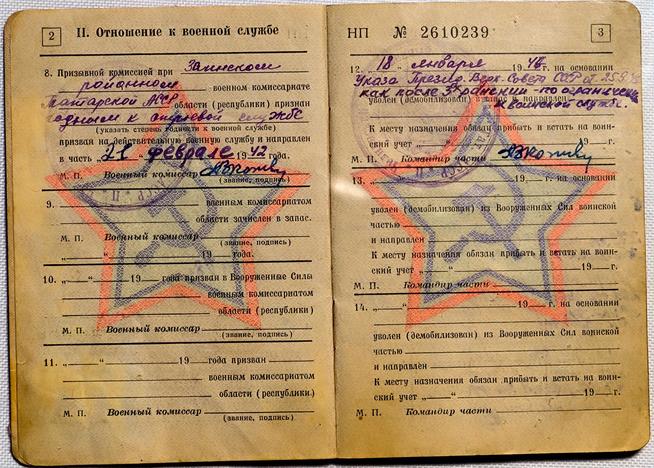 2
II. Отношение к военной службе
8. Призывной комиссией при Заинском
районном военном комиссариате
Татарской АССР области (республики) признан
годным к строевой службе
(указать степень годности к военной службе)
призван на действительную военную службу и направлен
в часть „21“ февраля 1942 года.
М. П. Военный комиссар
(звание, подпись)
9. военным комиссариатом
области зачислен в запас.
М. П. Военный комиссар
(звание, подпись)
„ “ 19 года.
10. „ “ 19 года призван в Вооруженные Силы
военным комиссариатом
области (республики)
М. П. Военный комиссар
(звание, подпись)
11. „ “ 19 года призван
военным комиссариатом
области (республики.)
М. П. Военный комиссар
(звание, подпись)
НП № 2610239
3
12. „18 января 194 г. на основании
Указа Презид. Верх. Совета СССР от
как после 3х ранений - по
уволен (демобилизован) в запас и направлен
военной службе.
К месту назначения обязан прибыть и встать на воин-
ский учет „ “ 19 г.
М. П. Командир части
13. „ “ 19 г. на основании
уволен (демобилизован) из Вооруженных Сил воинской
частью
и направлен
К месту назначения обязан прибыть и встать на воин-
ский учет „ “ 19 г.
М. П. Командир части
14. „ “ 19 г. на основании
уволен (демобилизован) из Вооруженных Сил воинской
частью
и направлен
К месту назначения обязан прибыть и встать на воин-
ский учет „ “ 19 г.
М. П. Командир части